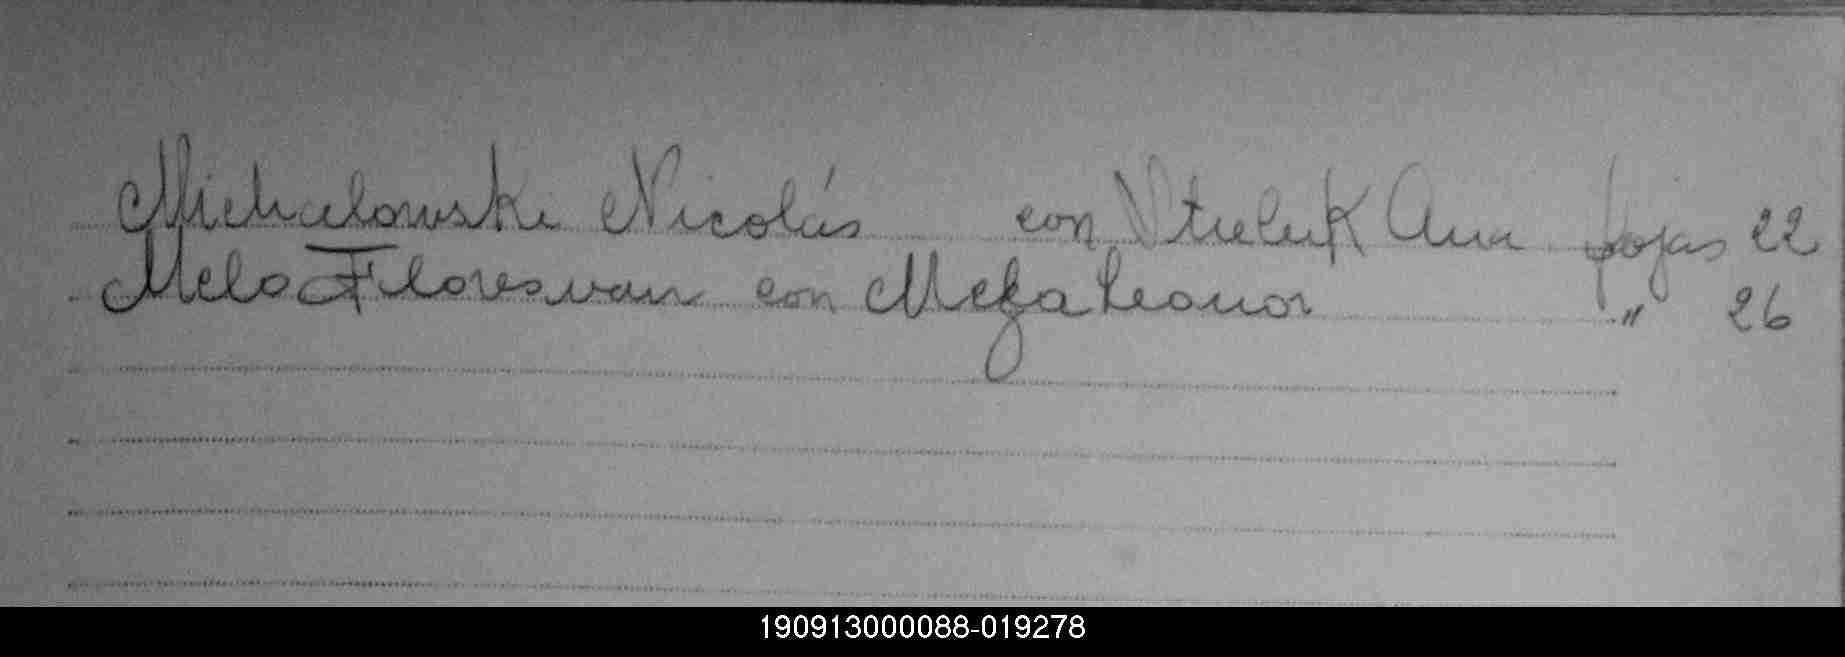 Michalowski Nicolás con Ana fojas 22
Melo Floresvan con Meza Leonor " 26
190913000088-019278